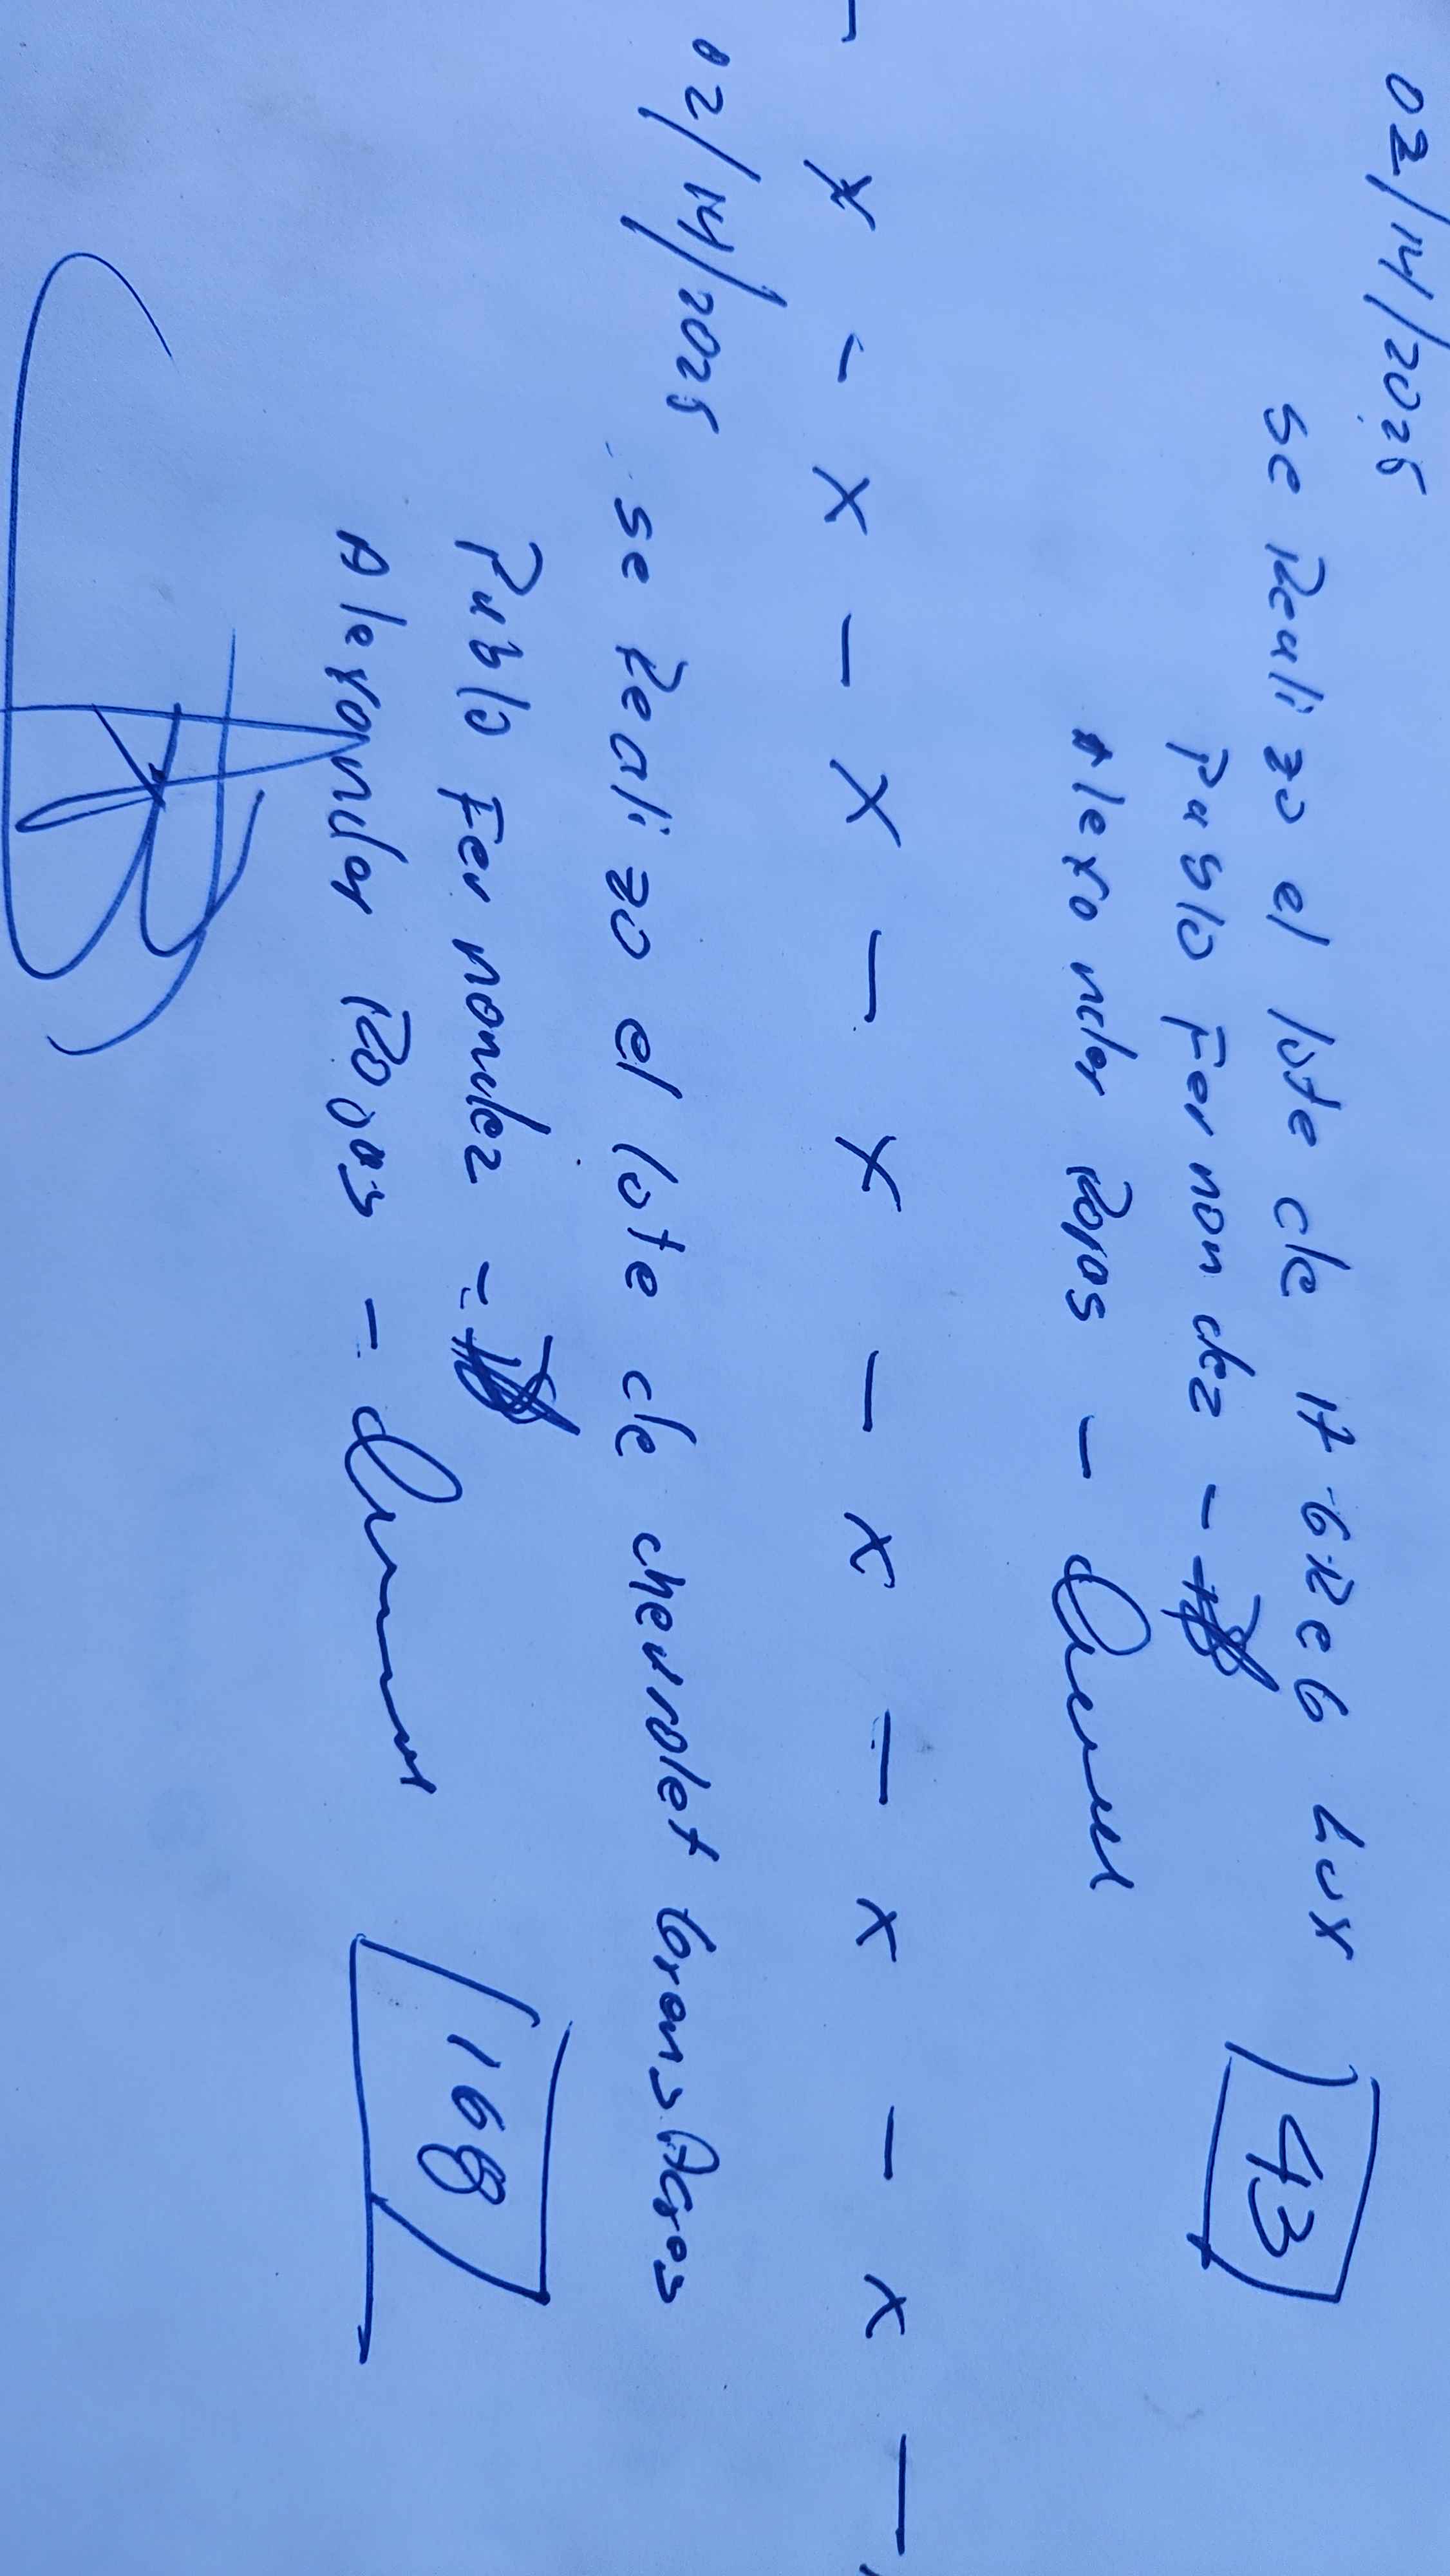 02/14/2025
se Realizo el lote de
Pablo Fernandez -
Alexander Rojas -
- x - x - x - x - x - x - x - x -
02/14/2025
se Realizo el lote de chevrolet
Pablo Fernandez -
Alexander Rojas -
43
168